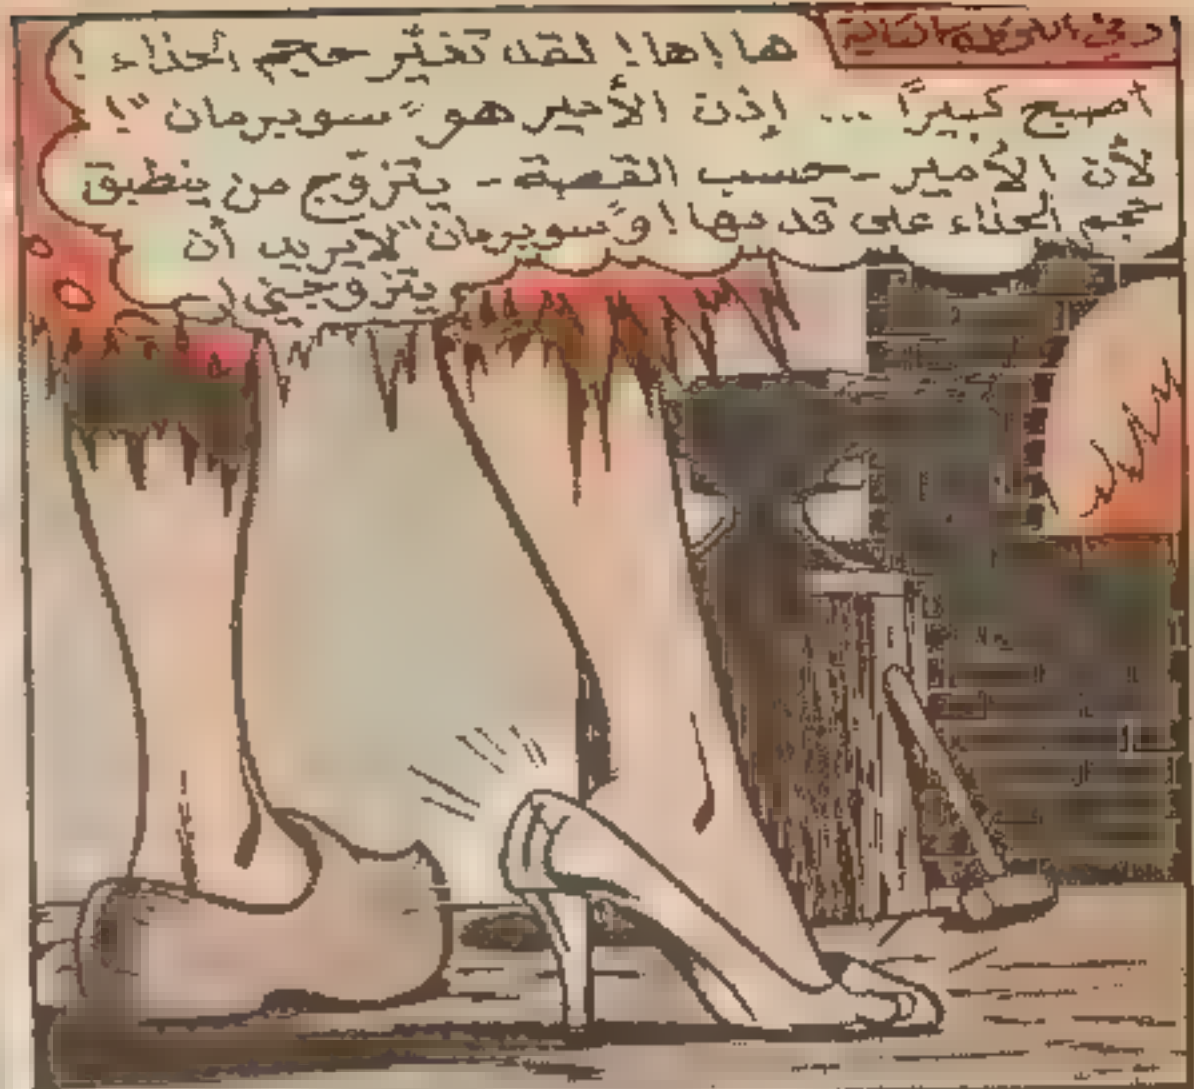 وفي اللحظة التالية
ها! ها! لقد تغيّر حجم الحذاء!
أصبح كبيرًا ... إذن الأمير هو "سوبرمان"!
لأن الأمير - حسب القصة - يتزوّج من ينطبق
حجم الحذاء على قدمها! و"سوبرمان" لا يريد أن
يتزوجني!